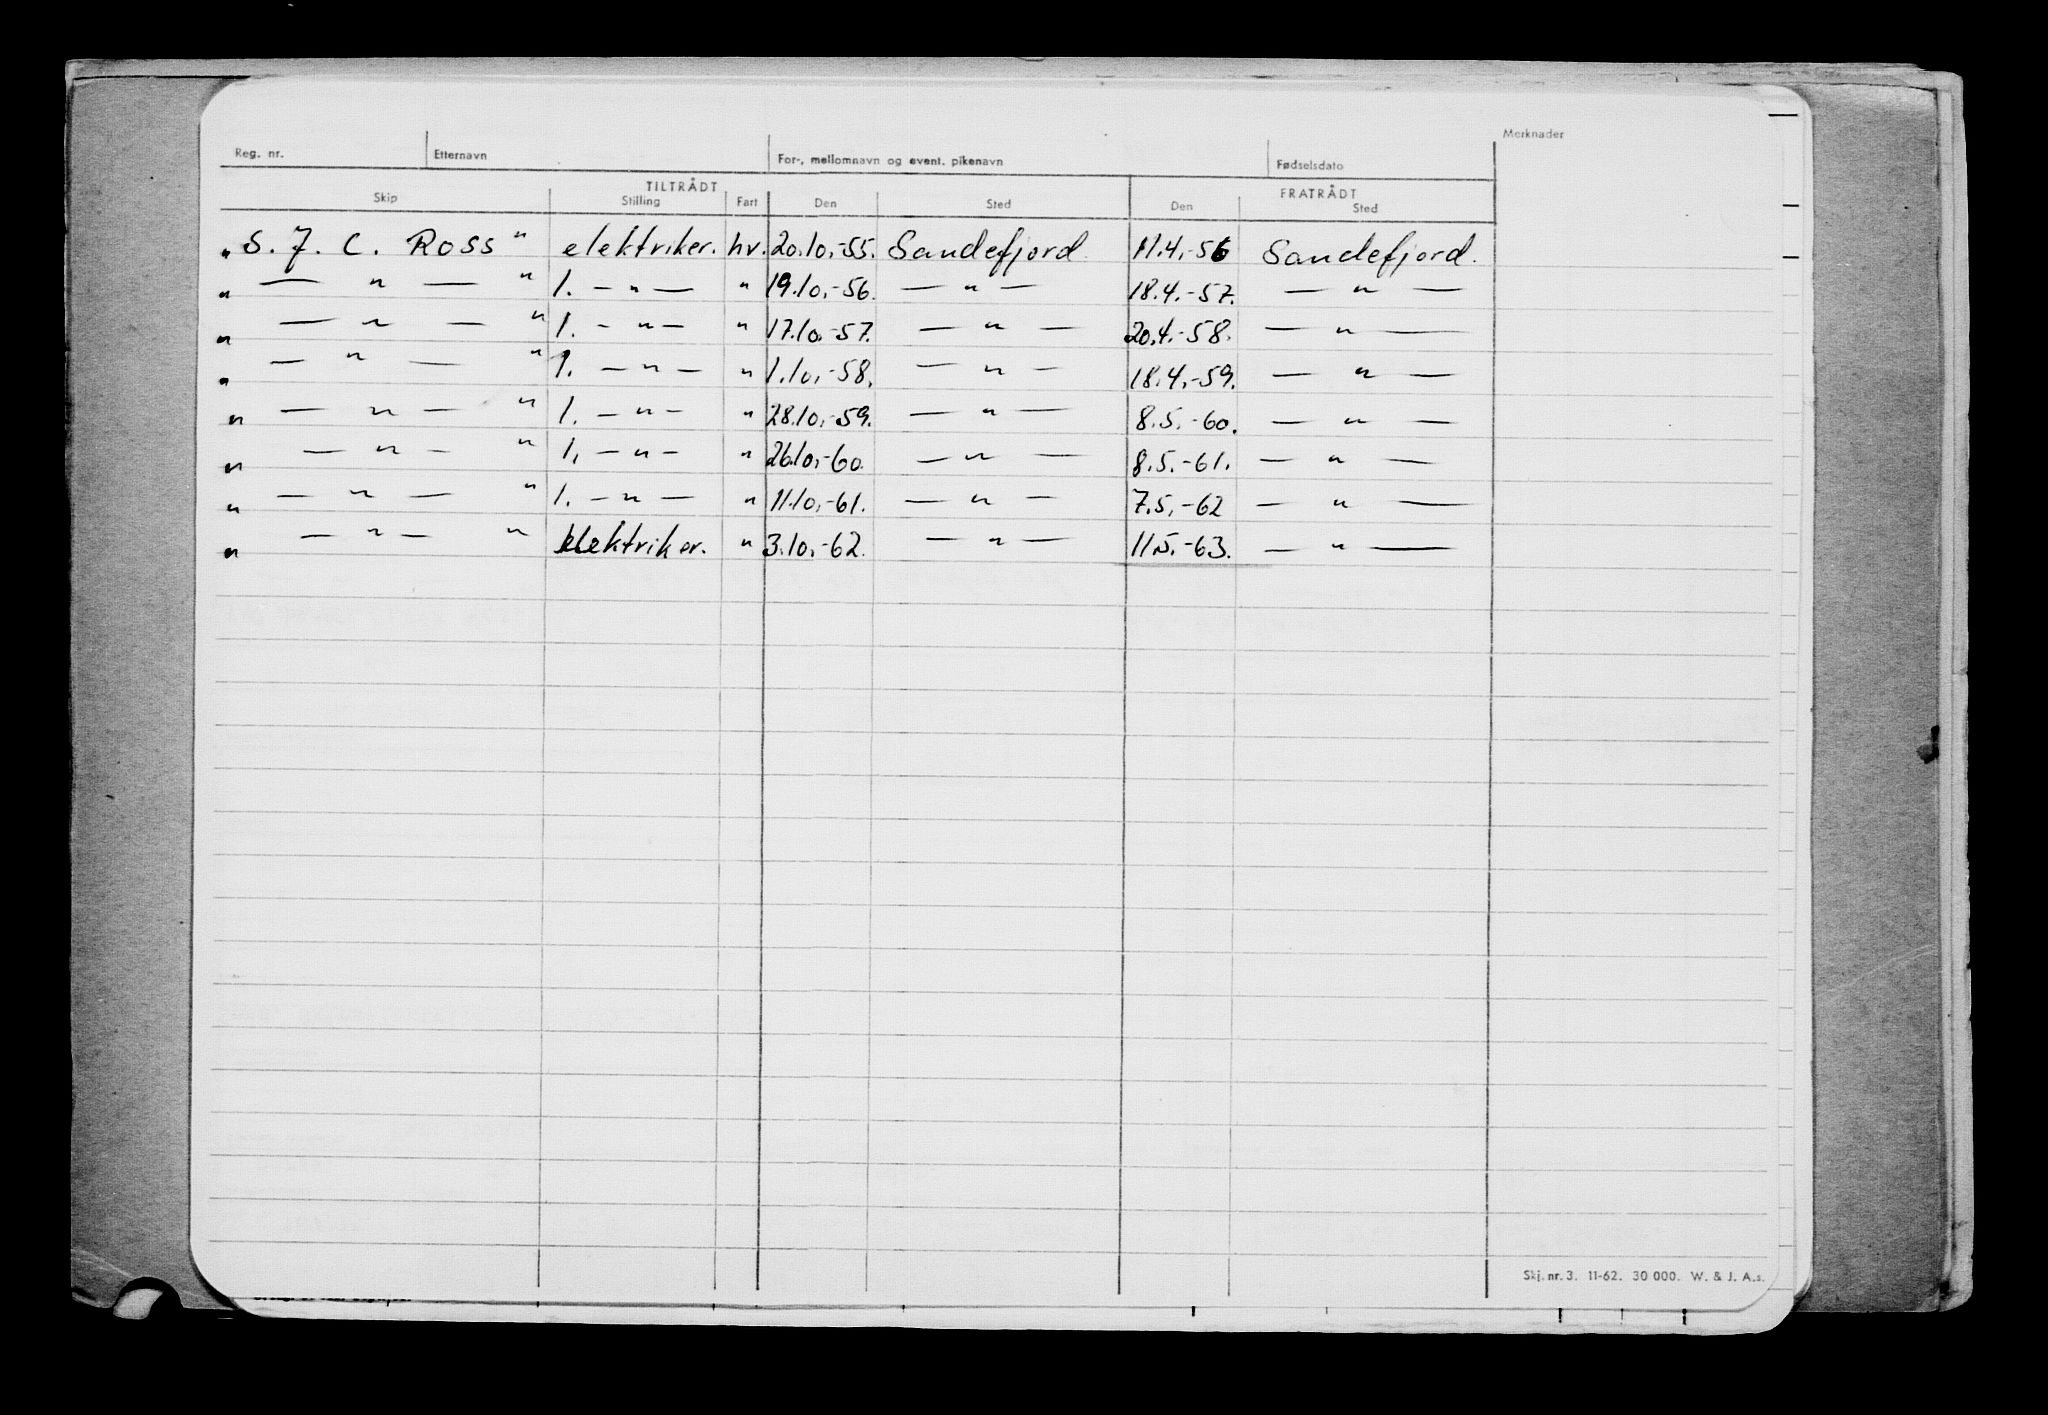 Merknader
Reg. nr. Etternavn For-, mellomnavn og event. pikenavn Fødselsdato
TILTRÅDT FRATRÅDT
Skip Stilling Fart Den Sted Den Sted
„S. J. C. Ross" elektriker. hv. 20.10.-55. Sandefjord. 11.4.-56 Sandefjord.
" — " — " 1. — " — " 19.10.-56. — " — 18.4.-57. — " —
" — " — " 1. — " — " 17.10.-57. — " — 20.4.-58. — " —
" — " — " 1. — " — " 1.10.-58. — " — 18.4.-59. — " —
" — " — " 1. — " — " 28.10.-59. — " — 8.5.-60. — " —
" — " — " 1. — " — " 26.10.-60. — " — 8.5.-61. — " —
" — " — " 1. — " — " 11.10.-61. — " — 7.5.-62 — " —
" — " — " elektriker. " 3.10.-62. — " — 11.5.-63. — " —
Skj. nr. 3. 11-62. 30 000. W. & J. A.s.